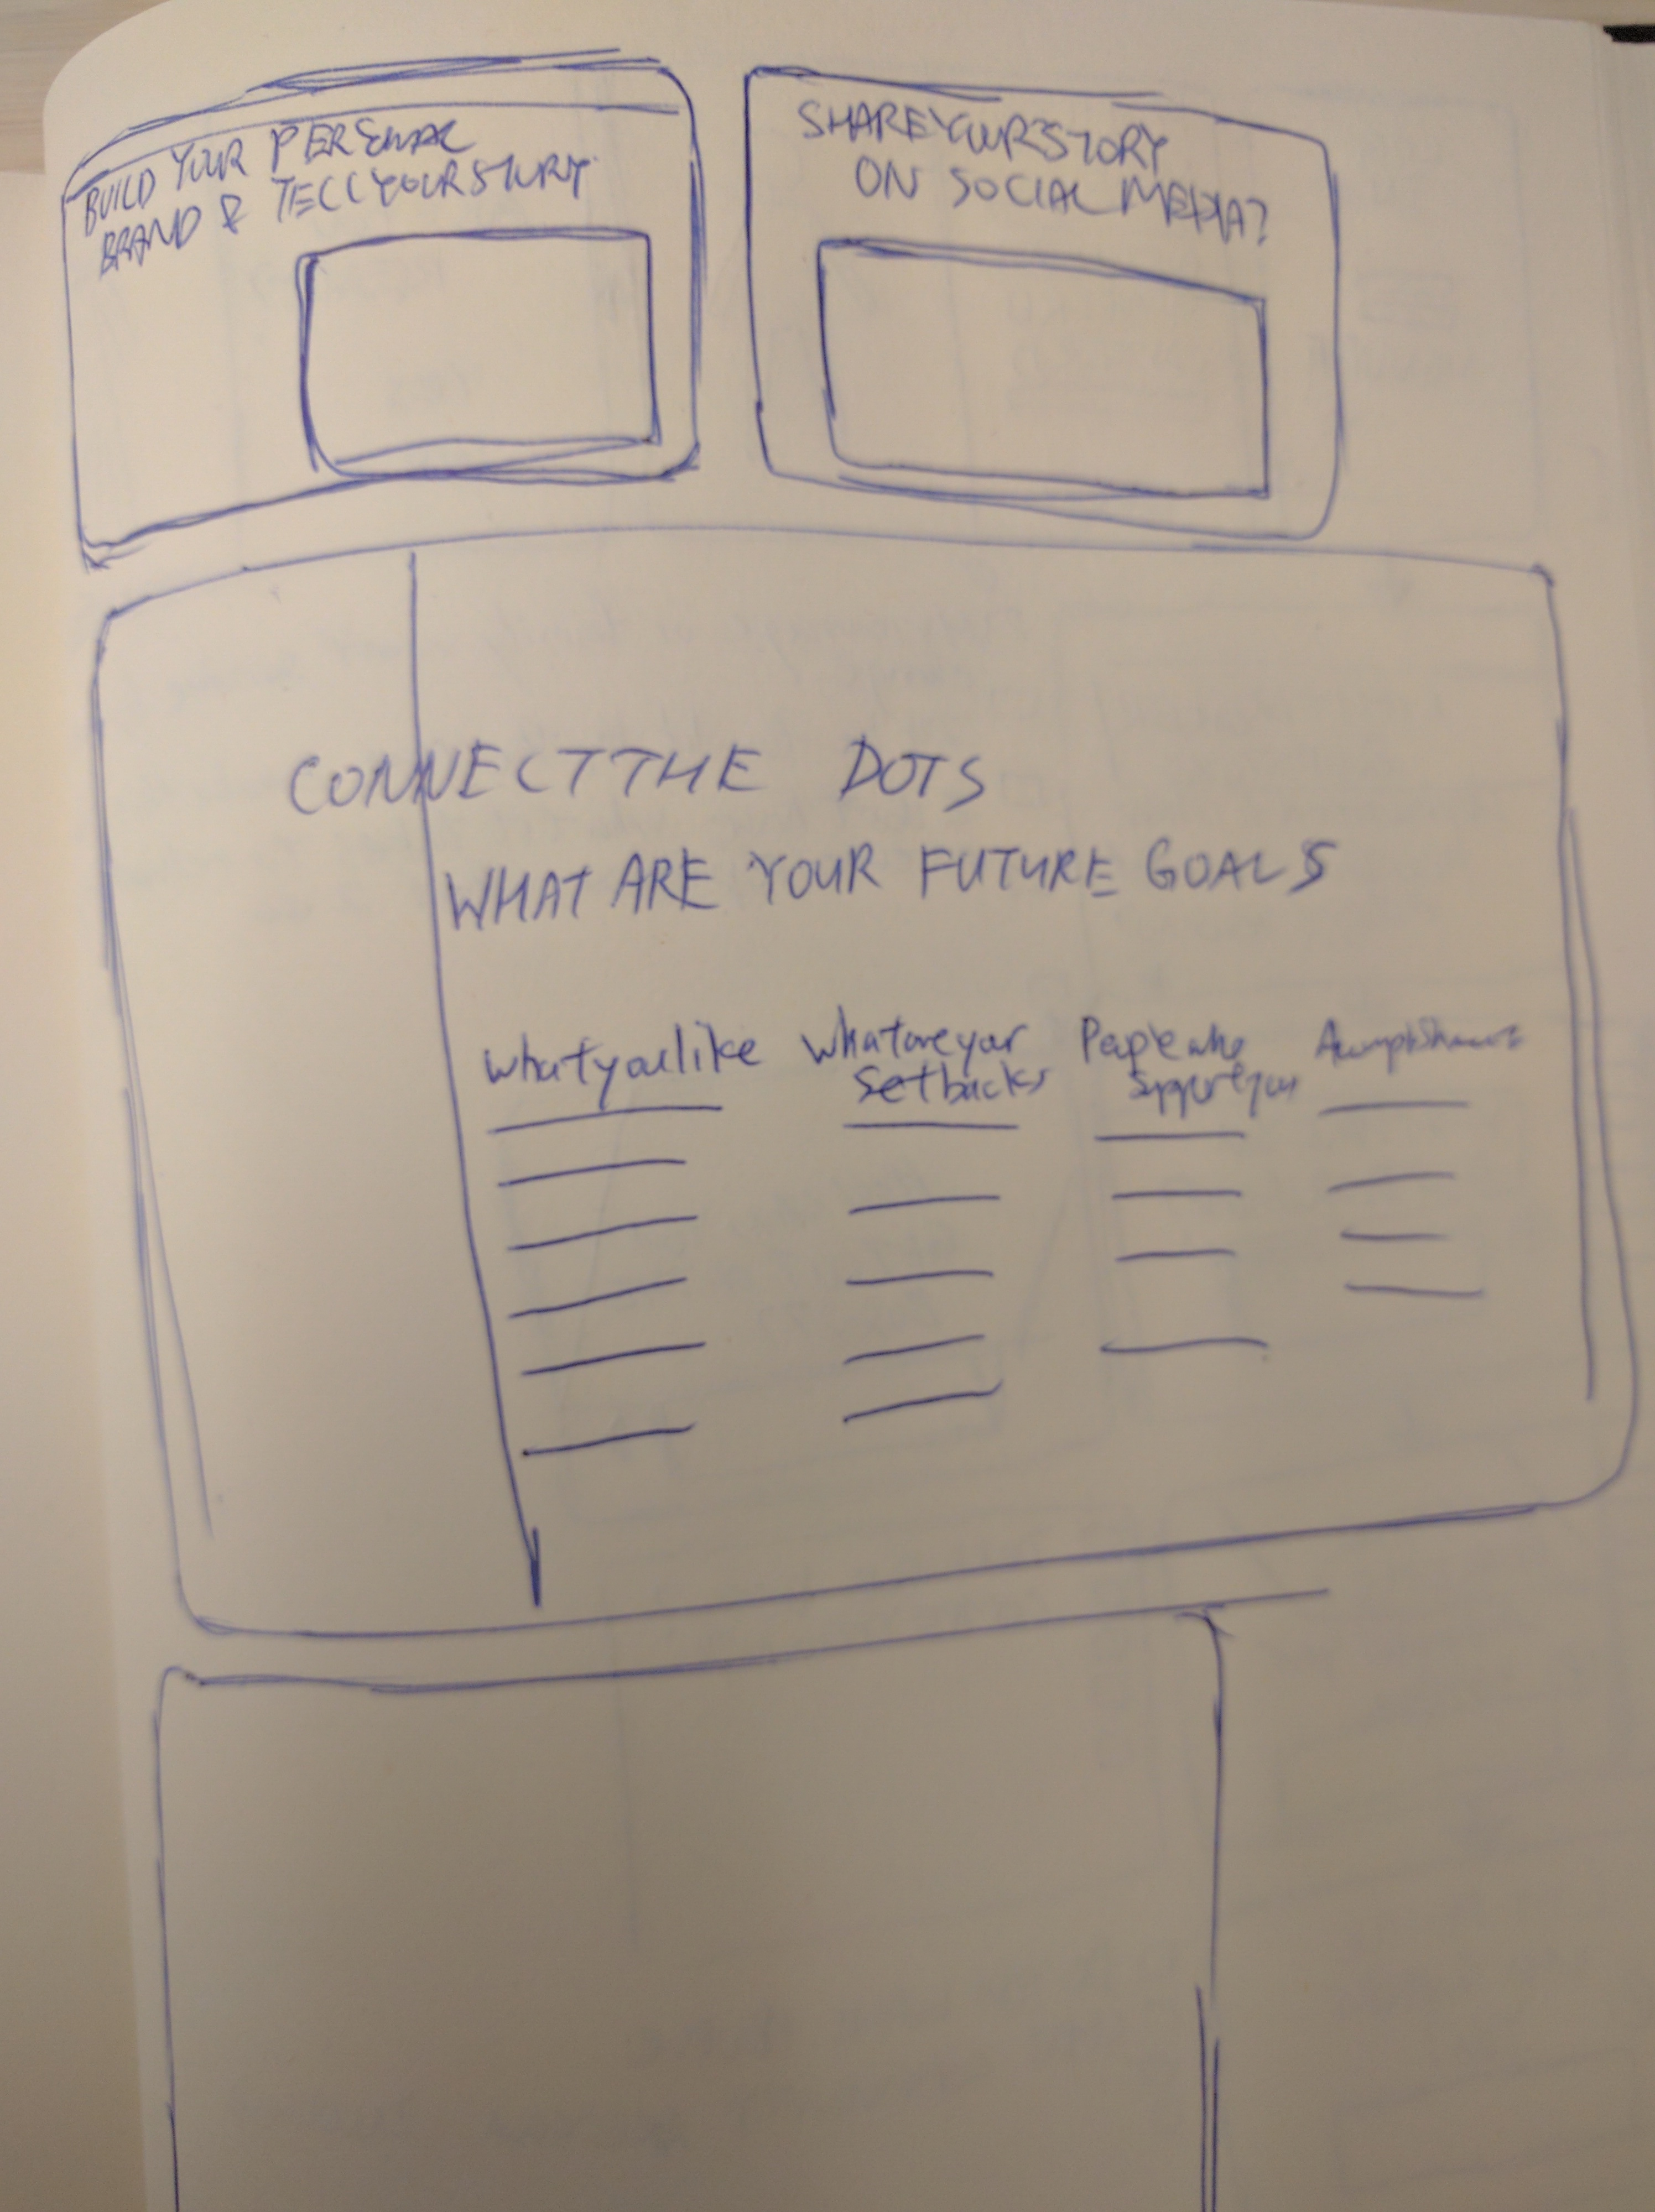 BUILD YOUR PERSONAL
BRAND & TELL YOUR STORY
SHARE YOUR STORY
ON SOCIAL MEDIA?
CONNECT THE DOTS
WHAT ARE YOUR FUTURE GOALS
What you like
What are your
Setbacks
People who
support you
Accomplishments